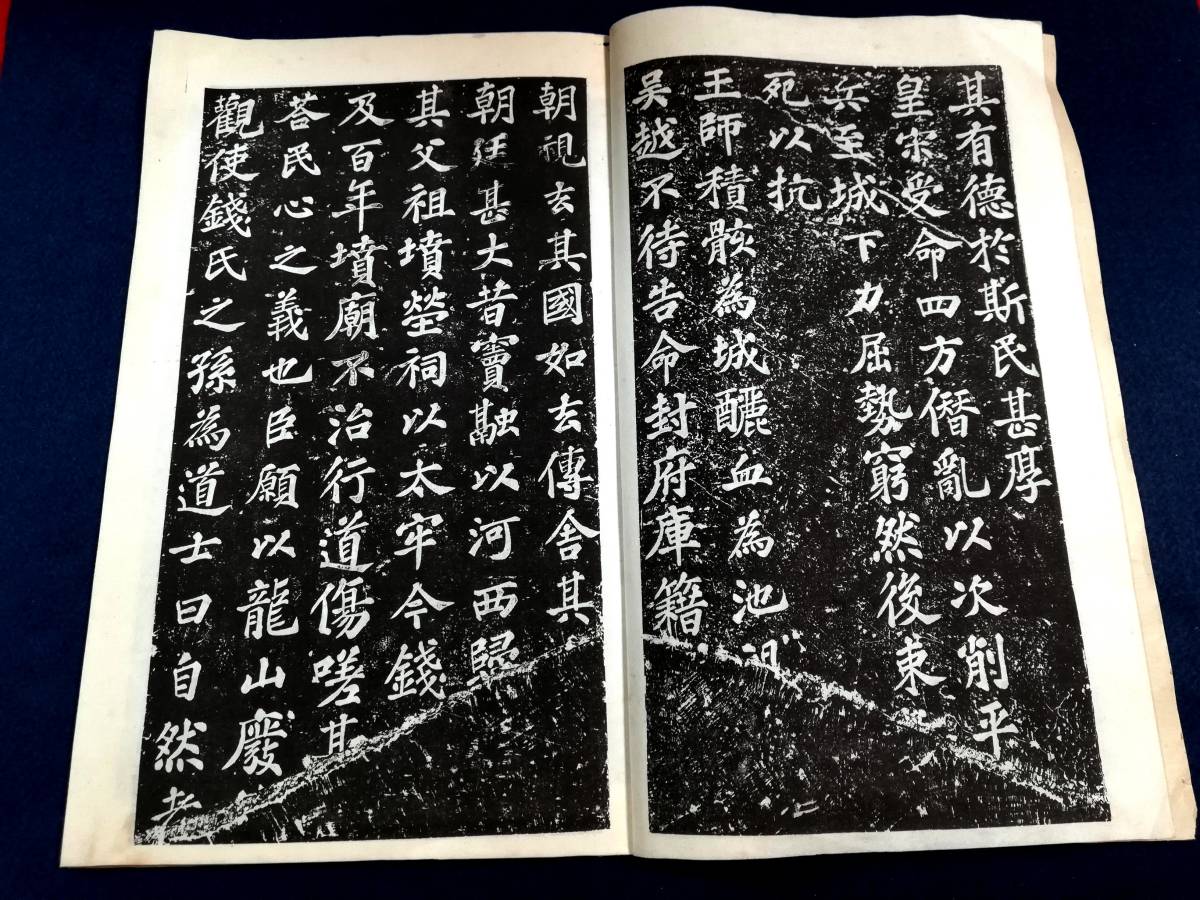 其有德於斯民甚厚
皇宋受命四方僭亂以次削平
兵至城下力屈勢窮然後東
死以抗
王師積骸為城釃血為池
吳越不待告命封府庫籍
朝視去其國如去傳舍其
朝廷甚大昔竇融以河西歸
其父祖墳塋祠以太牢今錢
及百年墳廟不治行道傷嗟甚
荅民心之義也臣願以龍山廢
觀使錢氏之孫為道士曰自然者